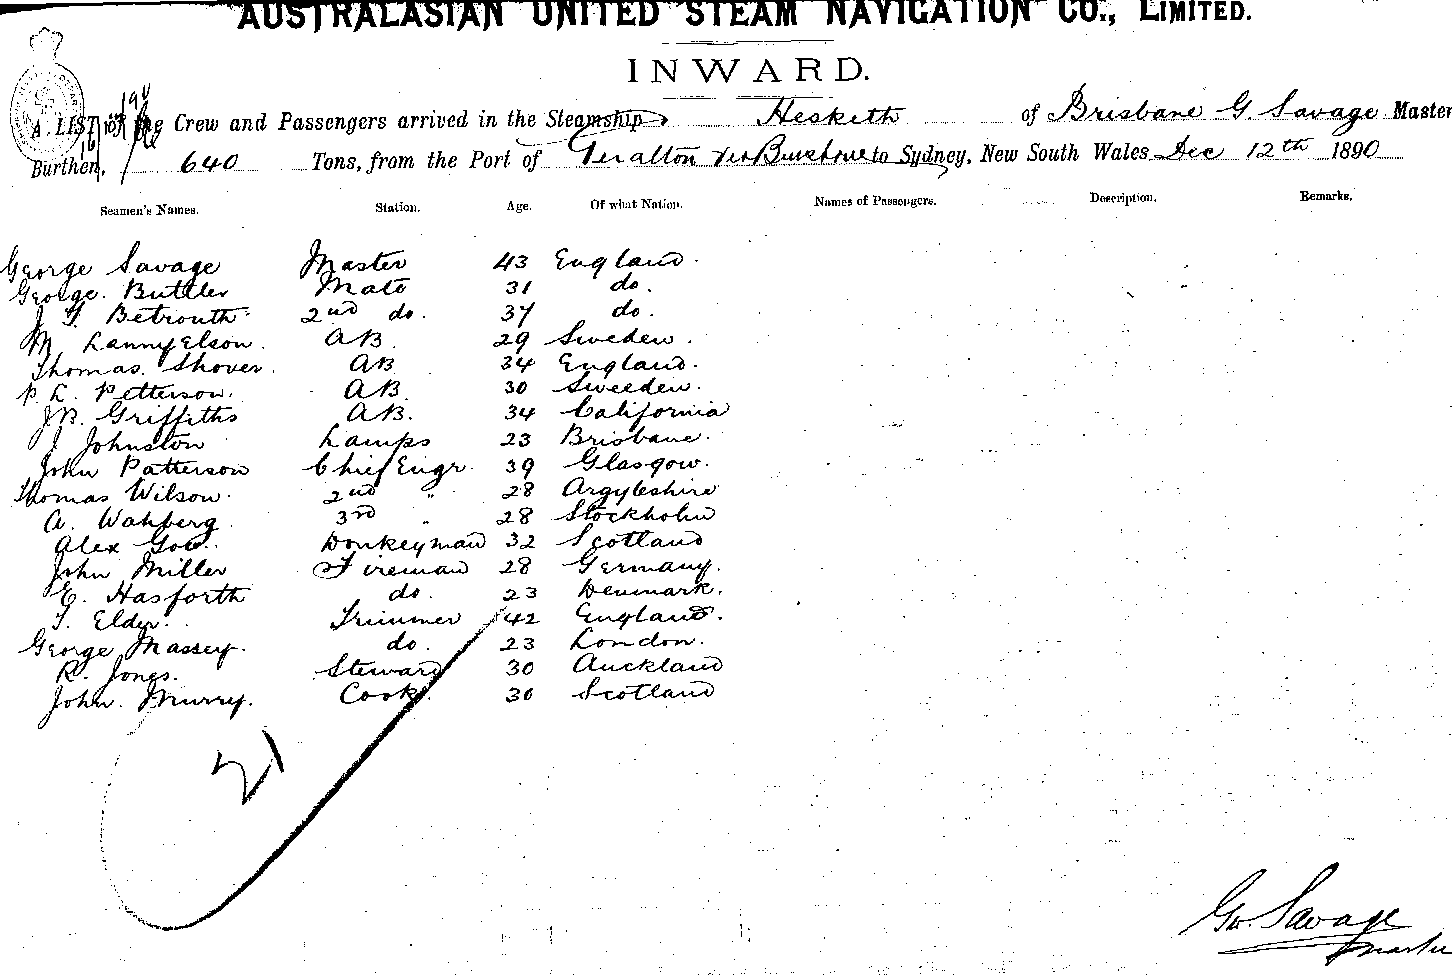 AUSTRALASIAN UNITED STEAM NAVIGATION CO., LIMITED.
INWARD.
A LIST of the Crew and Passengers arrived in the Steamship Hesketh of Brisbane G. Savage Master
Burthen, 640 Tons, from the Port of Geralton via Brisbane to Sydney, New South Wales Dec 12th 1890
Seamen's Names. Station. Age. Of what Nation. Names of Passengers. Description. Remarks.
George Savage Master 43 England.
George. Buttler Mate 31 do.
J Betrouth 2nd do. 37 do.
M Lannyelson. AB. 29 Sweden.
Thomas. Shover. AB 34 England.
P L. Petterson. AB. 30 Sweeden.
J.B. Griffiths AB. 34 California
J Johnston Lamps 23 Brisbane.
John Patterson Chief Engr. 39 Glasgow.
Thomas Wilson. 2nd " 28 Argyleshire
A. Wahberg 3rd " 28 Stockholm
Alex Gow. Donkeyman 32 Scotland
John Miller Fireman 28 Germany.
E. Hasforth do. 23 Denmark.
T. Elder. Trimmer 42 England.
George Massey. do. 23 London.
R. Jones. Steward 30 Auckland
John. Murry. Cook. 36 Scotland
21
Geo. Savage
Master